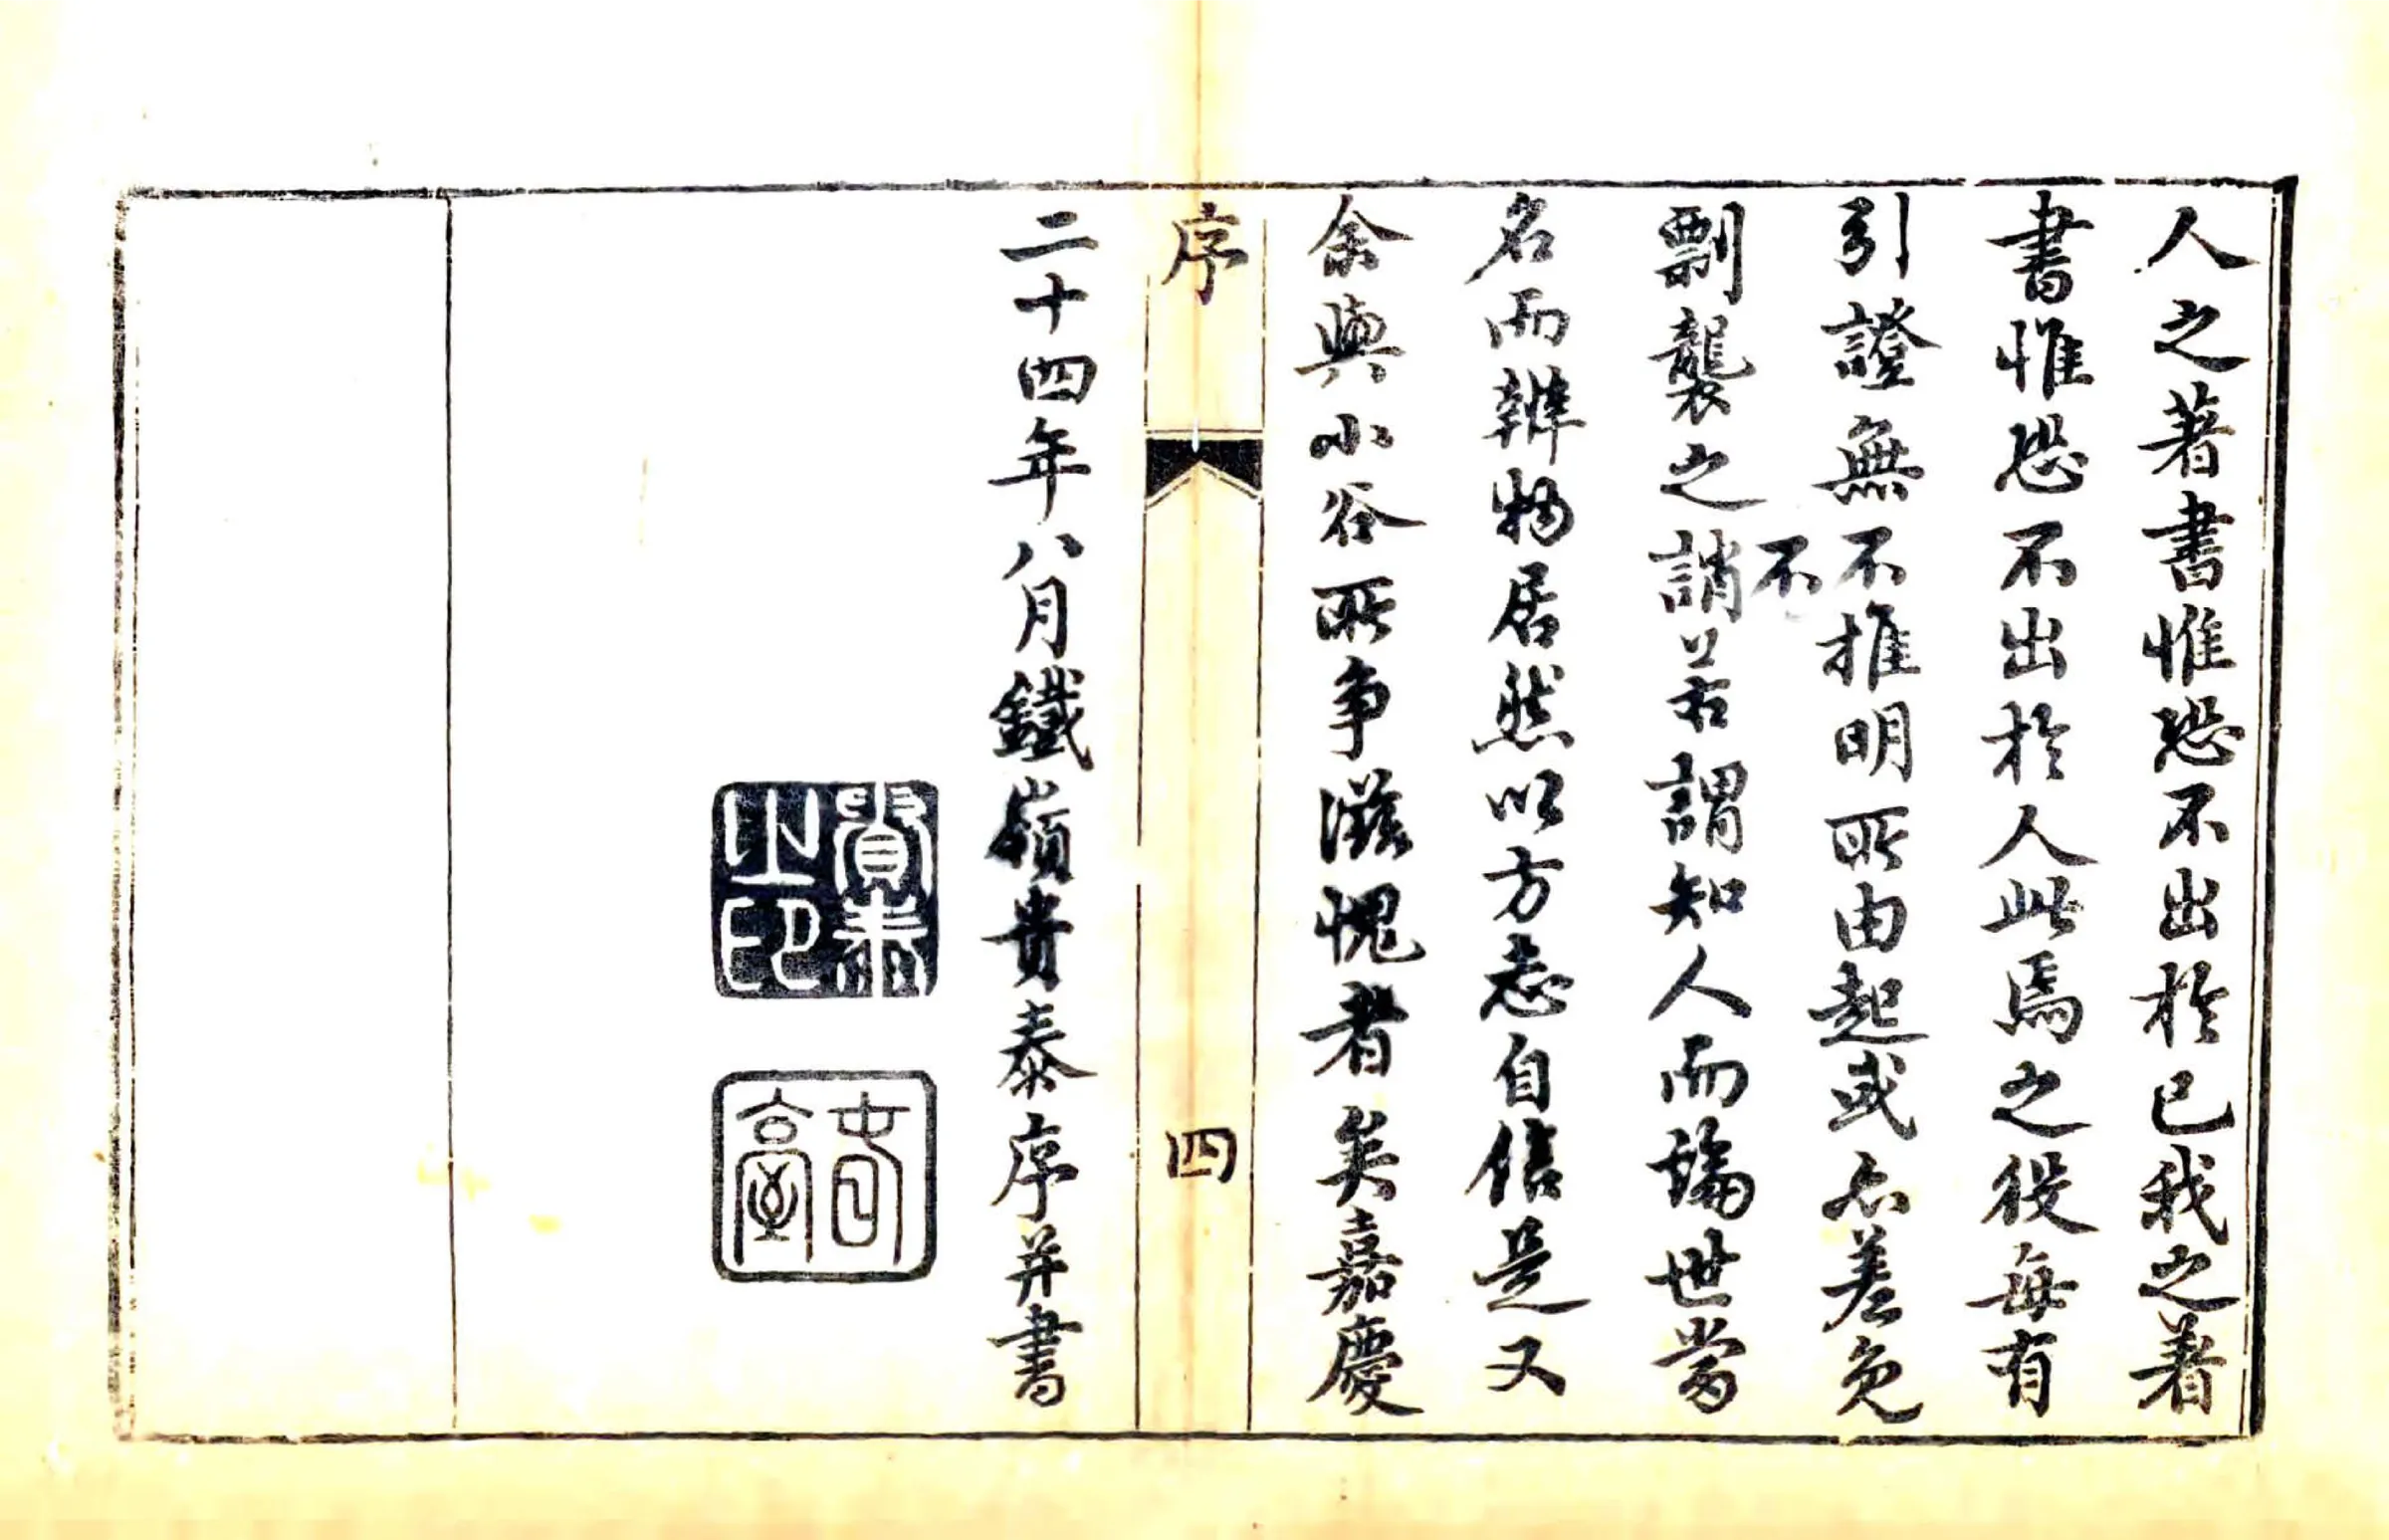 人之著書惟恐不出於己我之著
書惟恐不出於人此焉之役每有
引證無不推明所由起或亦差免
剽襲之誚不若謂知人而論世當
名而辨物居然以方志自信是又
余與小谷所爭滋愧者矣嘉慶
序 四
二十四年八月鐵嶺貴泰序并書
貴泰之印